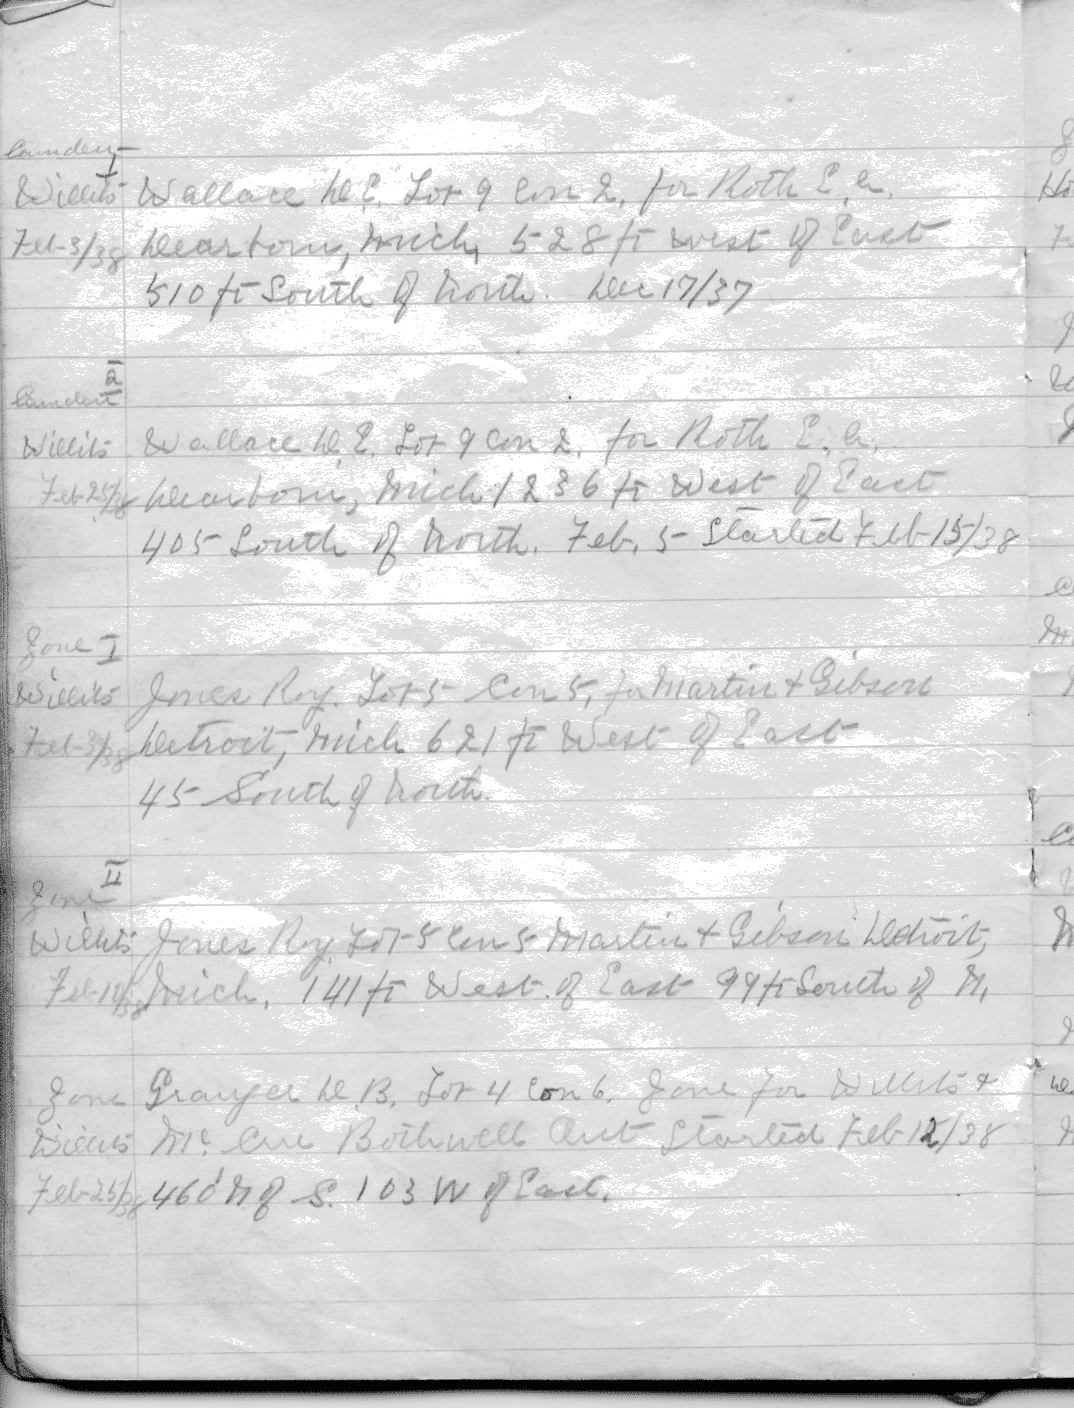 Camden I
Willits Wallace D. E. Lot 9 Con 2, for Roth E. A.
Feb-3/38 Dearborn, Mich, 528 ft West of East
510 ft South of North. Dec 17/37
2
Camden
Willits Wallace D. E. Lot 9 Con 2, for Roth E. A.
Feb-25/38 Dearborn, Mich 1236 ft West of East
405 South of North. Feb. 5 Started Feb-15/38
Zone I
Willits Jones Roy. Lot 5 Con 5, for Martin & Gibson
Feb-3/38 Detroit, Mich 621 ft West of East
45 South of North.
II
Zone
Willits Jones Roy. Lot 5 Con 5 Martin & Gibson Detroit,
Feb-10/38 Mich. 141 ft West of East 99 ft South of N.
Zone Granger D. B. Lot 4 Con 6, Zone for Willits &
Willits Mc Cue Bothwell Ont Started Feb 12/38
Feb-25/38 460' N of S. 103 W of East.